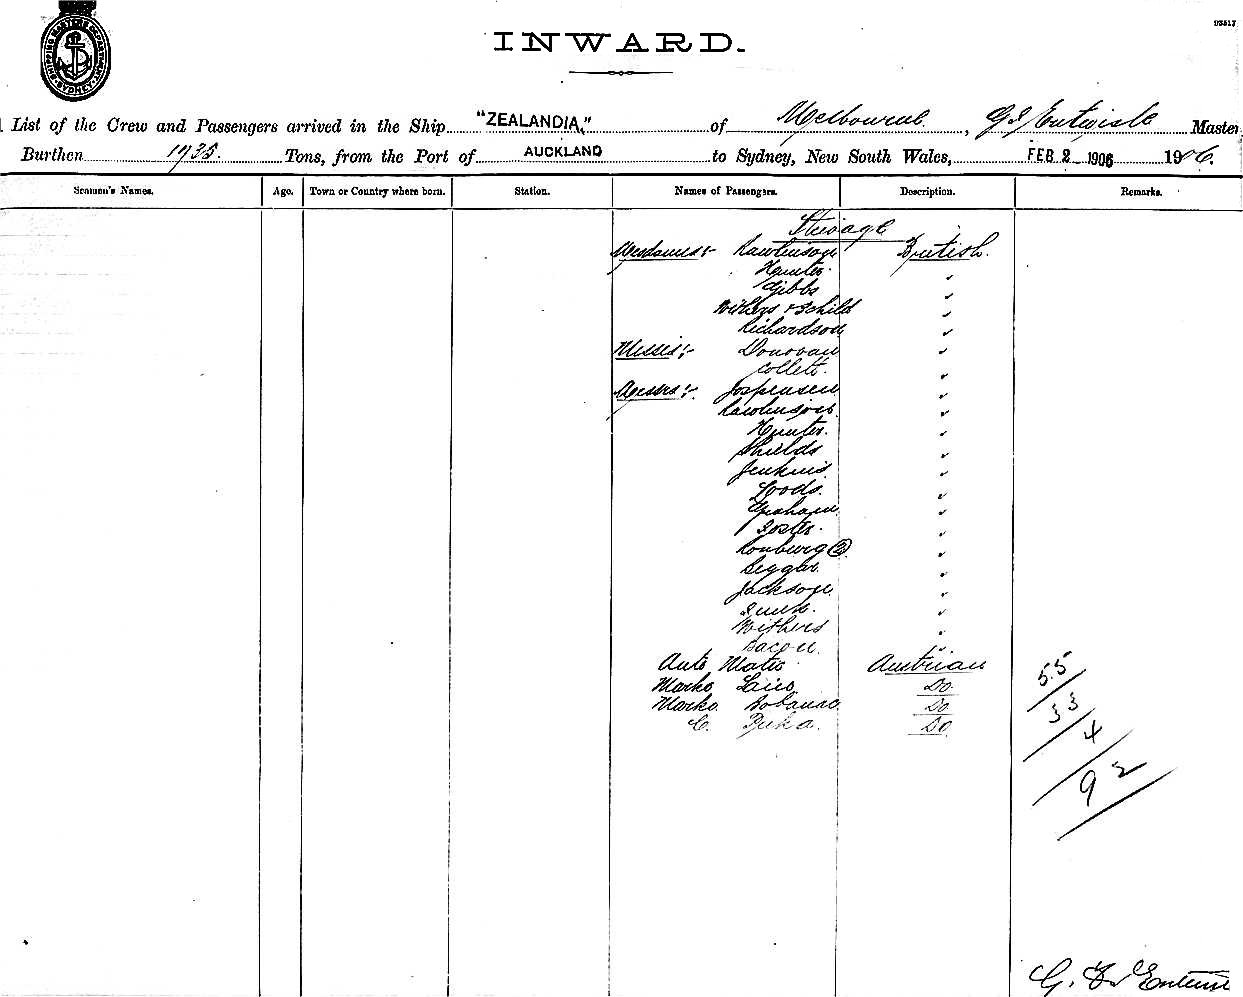 SHIPPING MASTERS DEPARTMENT SYDNEY
93517
INWARD.
List of the Crew and Passengers arrived in the Ship "ZEALANDIA," of Melbourne, Entwisle Master
Burthen 1935 Tons, from the Port of AUCKLAND to Sydney, New South Wales, FEB 2 1906 1906.
Seamen's Names. Age. Town or Country where born. Station. Names of Passengers. Description. Remarks.
Steerage
Mesdames :- Rawlinson British.
Hunter "
Gibbs "
Withers + 3 child "
Richardson "
Misses :- Donovan "
Collett. "
Messrs :- "
Rawlinson "
Hunter. "
Shields "
Jenkins "
Woods. "
Graham "
Foster. "
(2) "
Beggar. "
Jackson "
"
Withers "
Bacon. "
Mateo Austrian
Marko Do.
Marko Do
C. Do.
55
33
4
92
G.